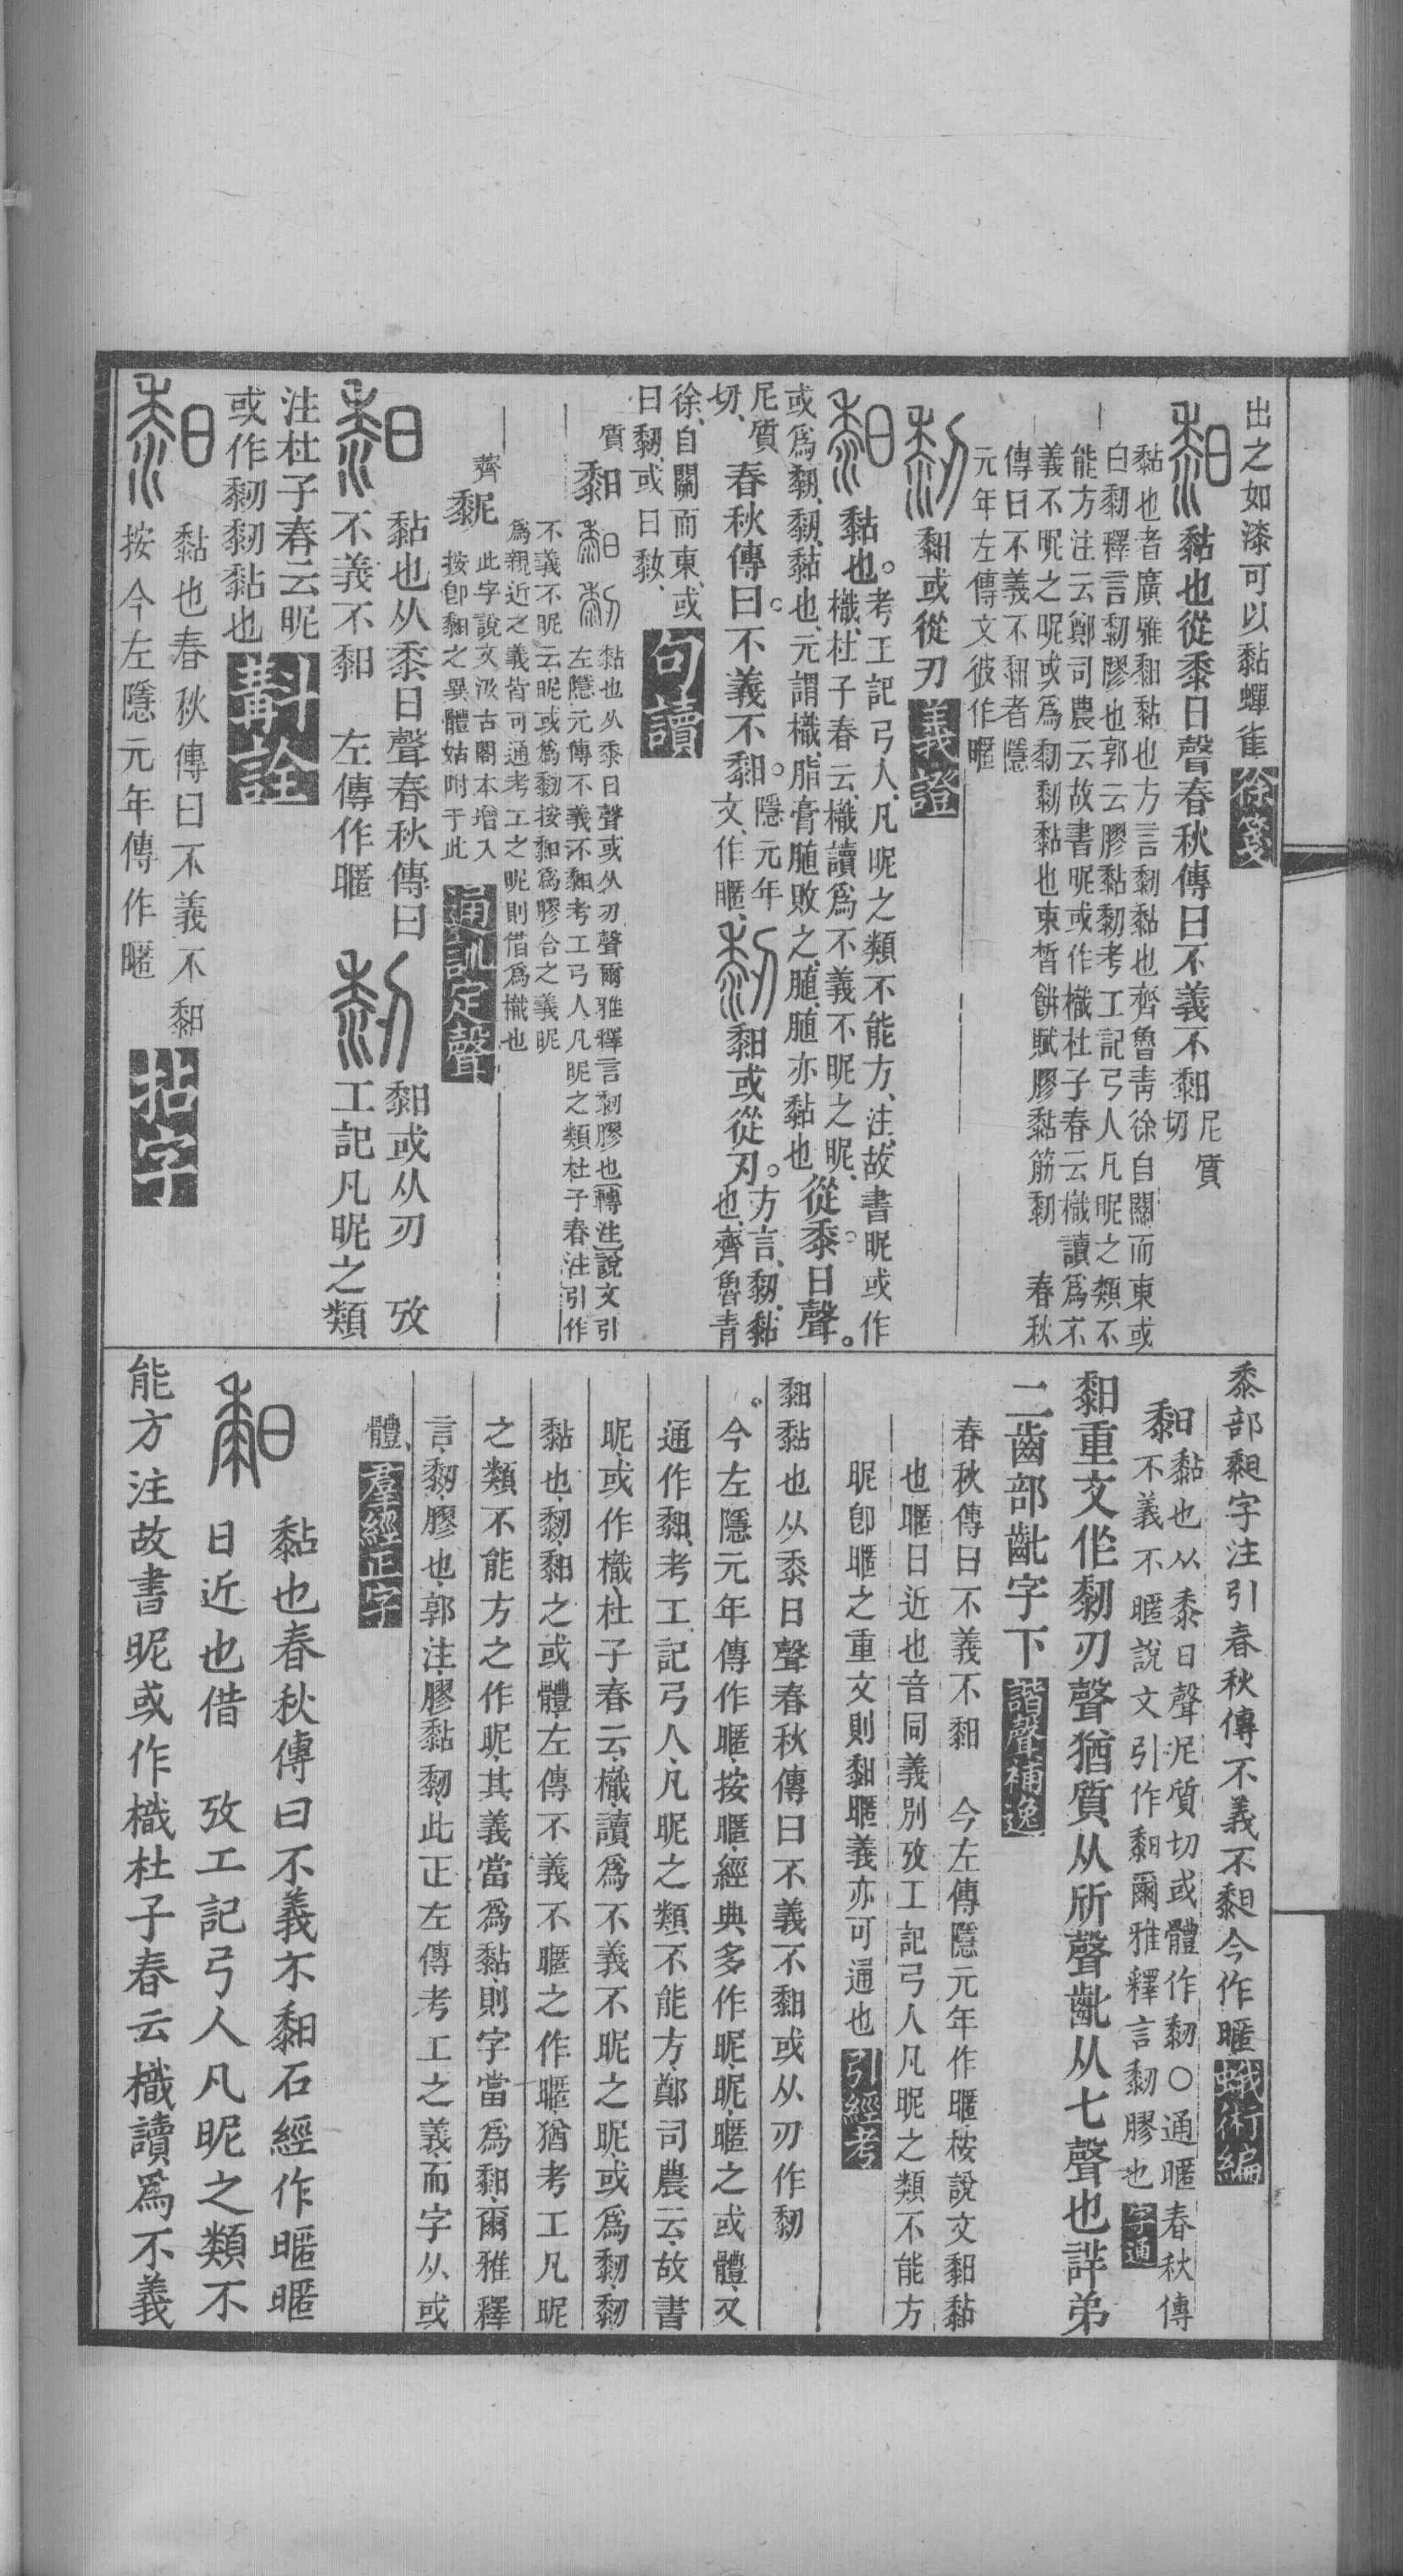 出之如漆可以黏蟬雀徐箋
䵒黏也從黍日聲春秋傳曰不義不䵒尼質切
黏也者廣雅䵒黏也方言䵑黏也齊魯青徐自關而東或
曰䵑釋言䵑膠也郭云膠黏䵑考工記弓人凡昵之類不
能方注云鄭司農云故書昵或作樴杜子春云樴讀爲不
義不昵之昵或爲䵑䵑黏也束晳餅賦膠黏筋䵑　春秋
傳曰不義不䵒者隱
元年左傳文彼作暱
䵑䵒或從刃義證
䵒黏也。考工記弓人、凡昵之類不能方、注、故書昵或作
樴、杜子春云、樴讀爲不義不昵之昵、
或爲䵑、䵑、黏也、元謂樴、脂膏䐈敗之䐈、䐈亦黏也從黍。日聲。
尼質切、春秋傳曰。不義不䵒。隱元年文、作暱、䵑䵒或從刃。方言、䵑、黏也、齊魯青
徐、自關而東、或
曰䵑、或曰䵒、句讀
質䵒䵒䵑黏也从黍日聲或从刃聲爾雅釋言䵑膠也轉注說文引
左隱元傳不義不䵒考工弓人凡昵之類杜子春注引作
不義不昵云昵或爲䵑按䵒爲膠合之義昵
爲親近之義皆可通考工之昵則借爲樴也
薺䵑此字說文汲古閣本增入
按卽䵒之異體姑附于此通訓定聲
䵒黏也从黍日聲春秋傳曰
不義不䵒　左傳作暱䵑䵒或从刃　攷
工記凡昵之類
注杜子春云昵
或作䵑䵑黏也斠詮
䵒黏也春秋傳曰不義不䵒
按今左隱元年傳作暱拈字
黍部䵒字注引春秋傳不義不䵒今作暱蛾術編
䵒黏也从黍日聲尼質切或體作䵑○通暱春秋傳
不義不暱說文引作䵒爾雅釋言䵑膠也字通
䵒重文作䵑刃聲猶質从斦聲齔从七聲也詳弟
二齒部齔字下諧聲補逸
春秋傳曰不義不䵒　今左傳隱元年作暱按說文䵒黏
也暱日近也音同義別攷工記弓人凡昵之類不能方
昵卽暱之重文則䵒暱義亦可通也引經考
䵒黏也从黍日聲春秋傳曰不義不䵒或从刃作䵑
。今左隱元年傳作暱、按暱、經典多作昵、昵、暱之或體、又
通作䵒、考工記弓人、凡昵之類不能方、鄭司農云、故書
昵、或作樴、杜子春云、樴、讀爲不義不昵之昵、或爲䵑、䵑
黏也、䵑、䵒之或體、左傳不義不暱之作暱、猶考工凡昵
之類不能方之作昵、其義當爲黏、則字當爲䵒、爾雅釋
言、䵑、膠也、郭注、膠黏䵑、此正左傳考工之義、而字从或
體、羣經正字
䵒黏也春秋傳曰不義不䵒石經作暱暱
日近也借　攷工記弓人凡昵之類不
能方注故書昵或作樴杜子春云樴讀爲不義